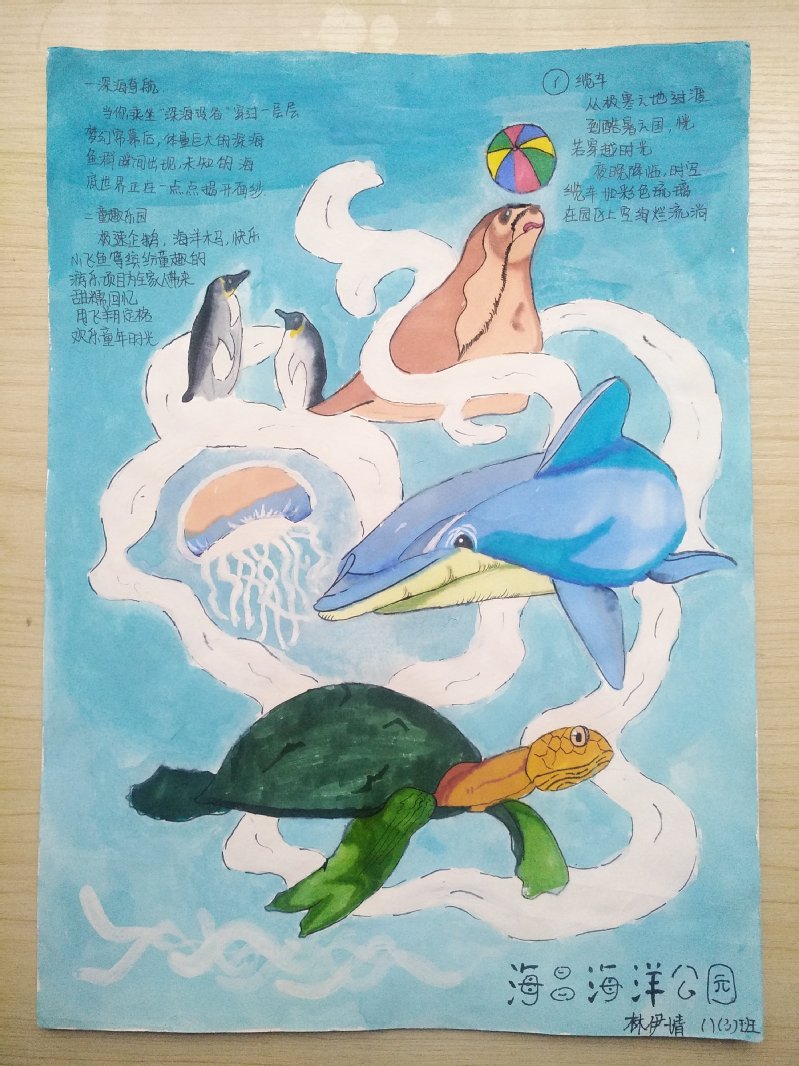 一 深海奇航
当你乘坐"深海设备"穿过一层层
梦幻帘幕后，体量巨大的深海
鱼群瞬间出现，未知的海
底世界正在一点点揭开面纱
二 童趣乐园
极速企鹅，海洋木马，快乐
小飞鱼等缤纷童趣的
游乐项目为全家人带来
甜糯回忆
用飞翔定格
欢乐童年时光
缆车
从极寒之地过渡
到酷暑之国，恍
若穿越时光
夜晚降临，时空
缆车 如彩色琉璃
在园区上空绚烂流淌
海昌海洋公园
林伊婧 八(3)班